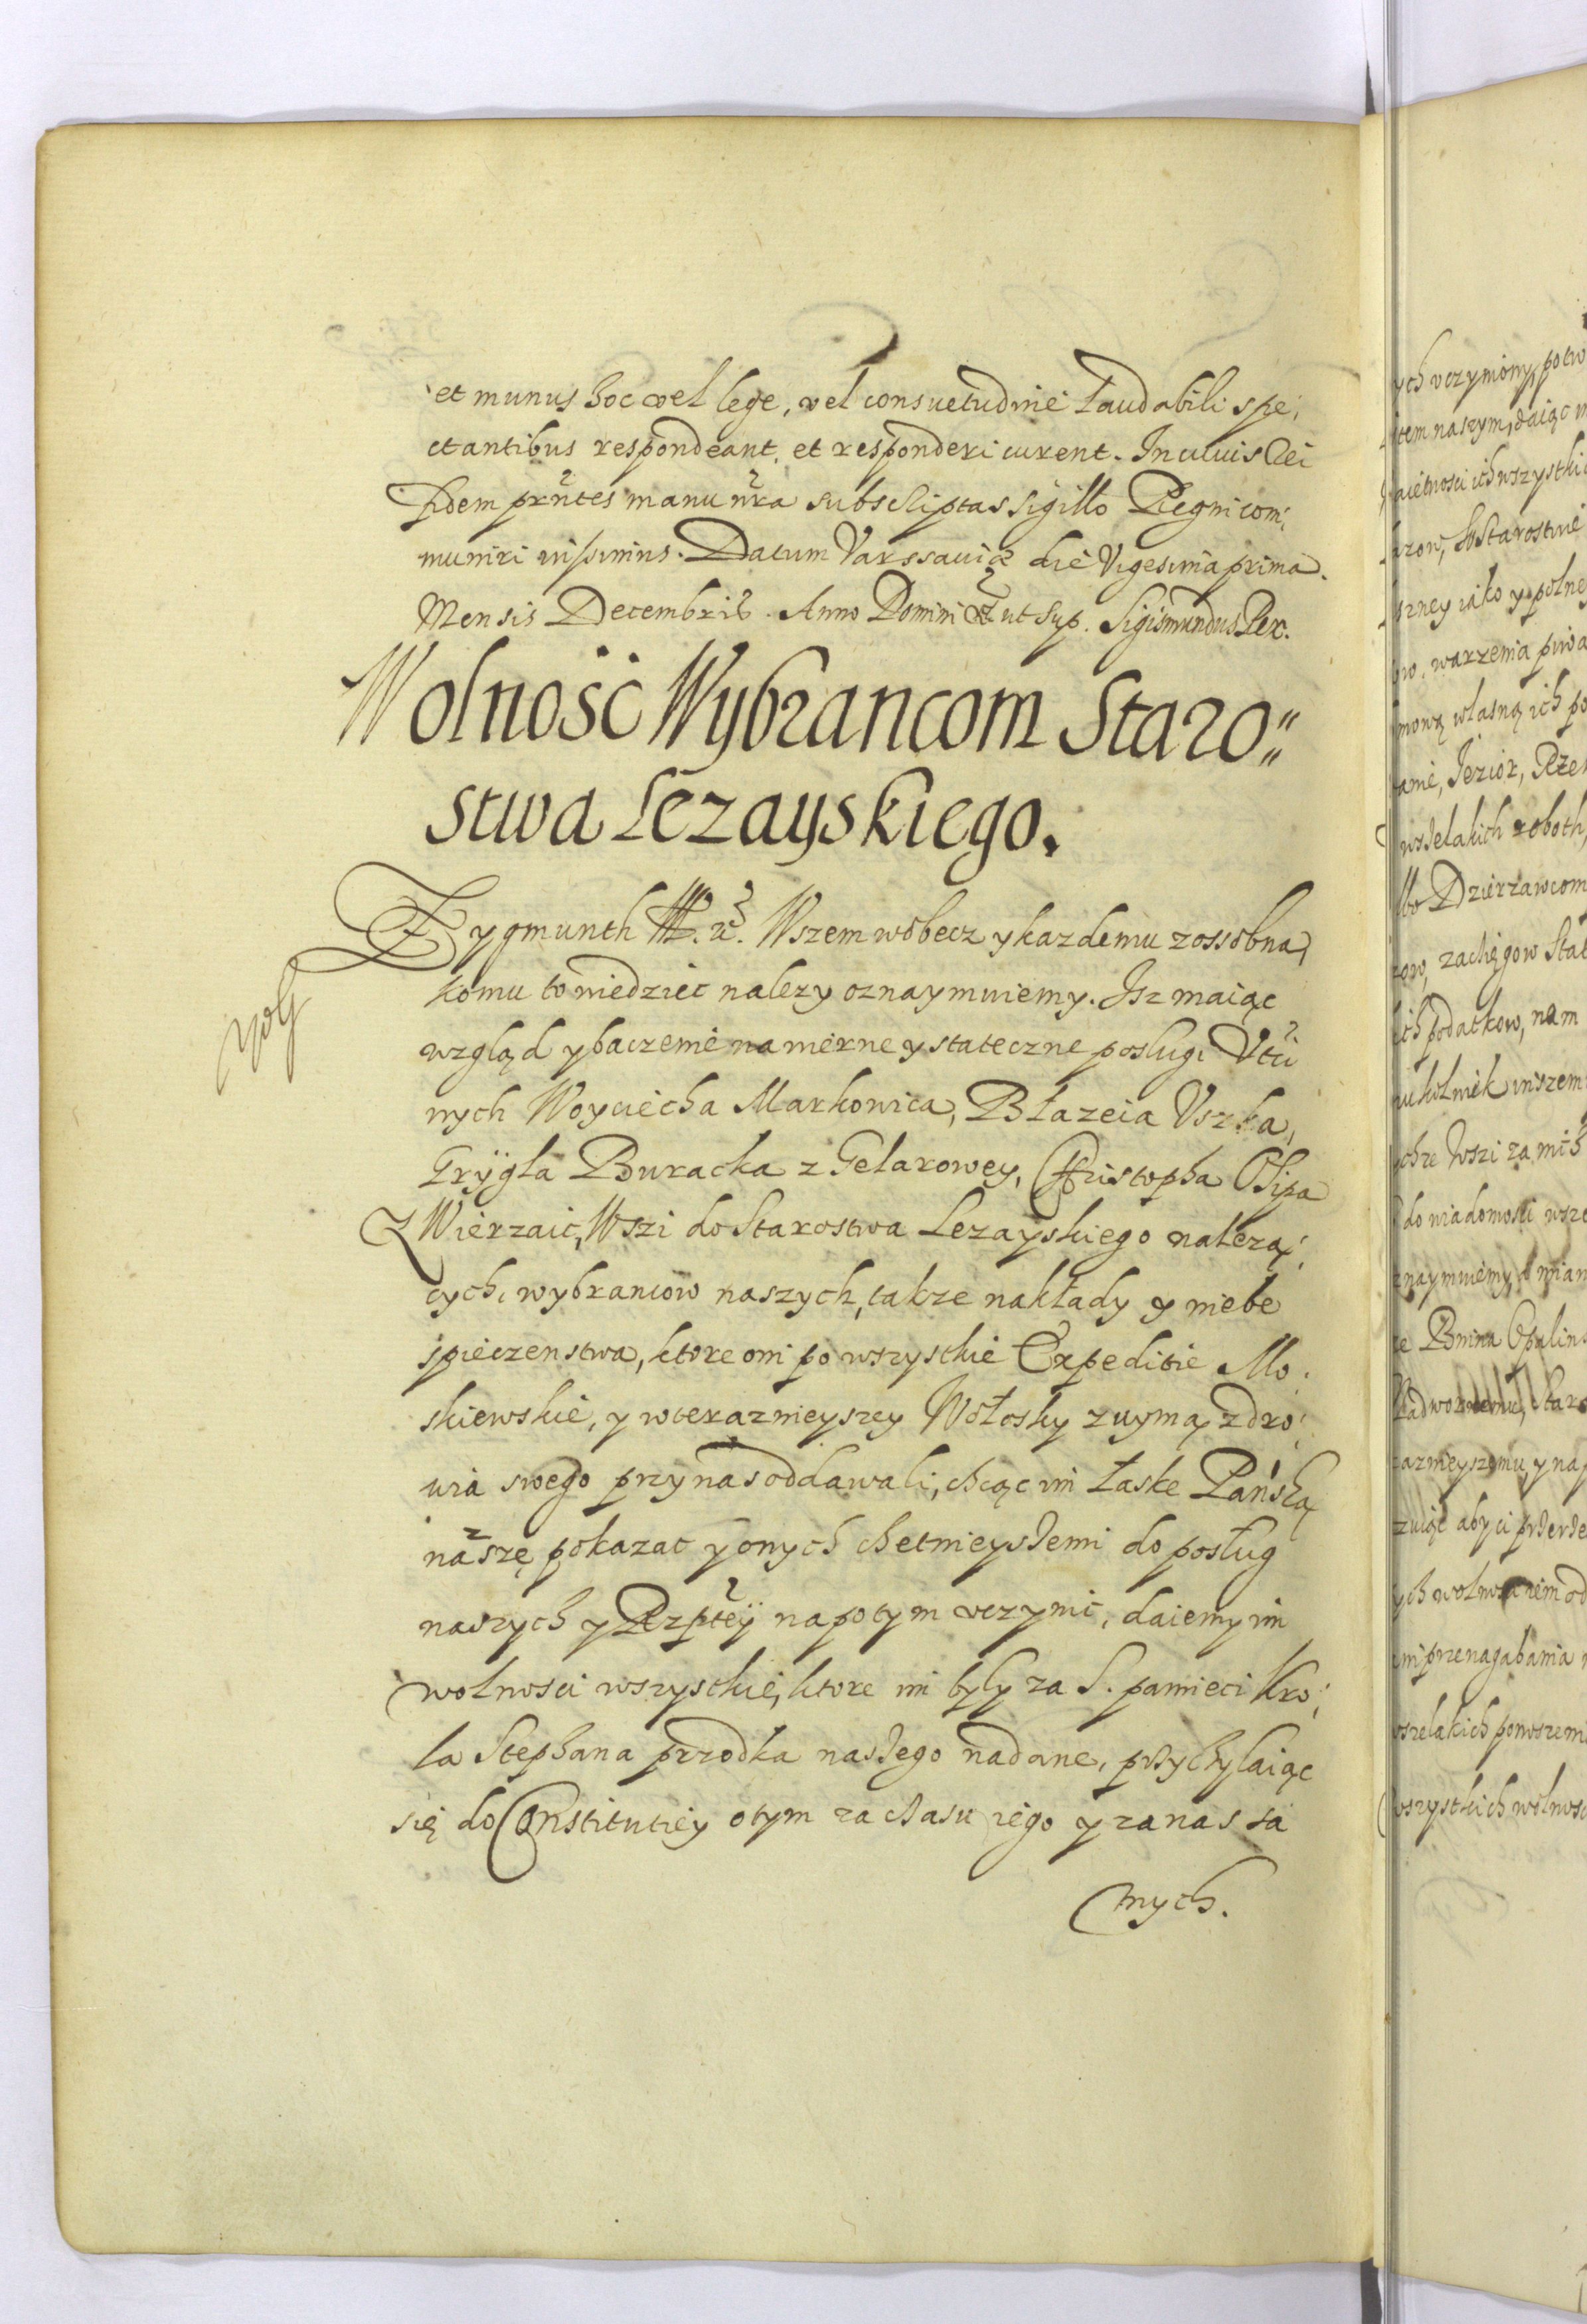 et munus hoc vel lege, vel consuetudine laudabili spe;
ctantibus respondeant, et responderi curent. In cuius Rei
fidem prntes manu nra subscriptas Sigillo Regni com;
muniri iussimus. Datum Varssaviæ die Vigesima prima.
Mensis Decembris. Anno Domini ut sup. Sigismundus Rex.
Wolnosć Wybrancom Staro"
stwa Lezayskiego.
Zygmunth Wszem wobecz y kazdemu zossobna,
komu to wiedziec nalezy oznaymuiemy. Isz maiąc
wzgląd y baczenie na wierne y stateczne poslugi Vtći
wych Woyciecha Markowica, Błazeia Vszka,
Grÿgla Buracka z Gelarowey, Christopha Osipa
Z Wierzaic, Wszi do Starostwa Lezayskiego nalezą;
cych, wybrancow naszych, takze nakłady y niebe
spieczenstwa, ktore oni po wszystkie Expeditie Mo;
skiewskie, y w teraznieyszey Wołosky z uymą zdro;
wia swego przy nas oddawali, chcąc im łaske Pańską
naszę pokazac y onych chetnieyszemi do posług
naszych y Rzptėÿ napotym vczynic, daiemy im
wolnosci wszystkie, ktore im były za S. pamieci Kro;
la Stephana przodka naszego nadane, przychylaiąc
się do Constitutiey o tym za czasu iego y za nas sa
mych.
ych vczyniony, potw
naszym, daiąc
wszystki
Starostwie
szney iako y polney
warzenia piwa
mową własną ich po
Jezior, Rzek
wszelakich roboth,
Dzierzawcom
Stac
ich podatkow, nam
kolwiek inszem
Wszi za mis
do wiadomosci wsze
znaymuiemy,
Bnina Opalins
Nadwornemu, Staro
aznieyszemu, y nap
zuiąc aby ci
ych wolnosc
przenagabania
wszelakich
wszystkich wolnosc